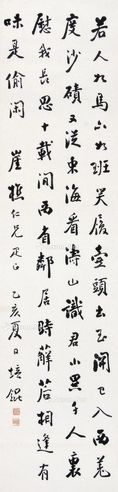 若人如馬亦如班笑履壺頭出玉關已入西羌
度沙磧又從東海看濤山識君小異千人裏
慰我長思十載間西省鄰居時薢茩相逢有
味是偷閑 崖樵仁兄疋正 乙亥夏日培錕